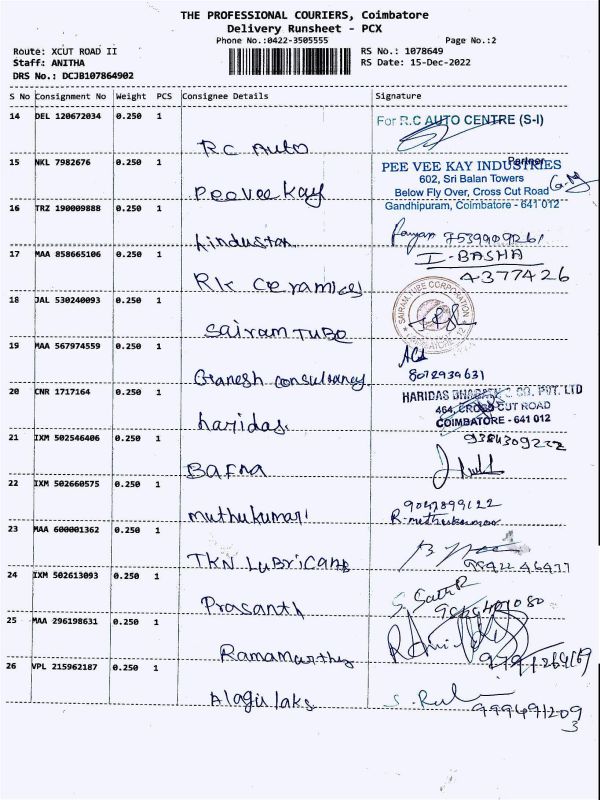 THE PROFESSIONAL COURIERS, Coimbatore
Delivery Runsheet - PCX
Phone No.:0422-3505555 Page No.:2
Route: XCUT ROAD II RS No.: 1078649
Staff: ANITHA RS Date: 15-Dec-2022
DRS No.: DCJB107864902
S No Consignment No Weight PCS Consignee Details Signature
14 DEL 120672034 0.250 1 For R.C AUTO CENTRE (S-I)
RC Auto
Partner
15 NKL 7982676 0.250 1 PEE VEE KAY INDUSTRIES
602, Sri Balan Towers
Peeveekay Below Fly Over, Cross Cut Road
16 TRZ 190009888 0.250 1 Gandhipuram, Coimbatore - 641 012
hindustan
17 MAA 858665106 0.250 1 I-BASHA
RK Ceramics 4377426
18 JAL 530240093 0.250 1 SAIRAM TUBE CORPORATION
Sairam TUBE
19 MAA 567974559 0.250 1
Ganesh consultancy 8072939631
20 CNR 1717164 0.250 1 HARIDAS CO. PVT. LTD
464, CROSS CUT ROAD
haridas. COIMBATORE - 641 012
21 IXM 502546406 0.250 1 9384309222
Bafna
22 IXM 502660575 0.250 1
muthukumari R.muthukumar
23 MAA 600001362 0.250 1
TKN LUBRICANE
24 IXM 502613093 0.250 1
Prasanth
25 MAA 296198631 0.250 1
Ramamurthy
26 VPL 215962187 0.250 1
Alagu laks